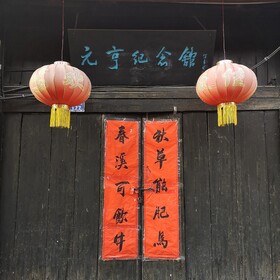 元亨纪念馆
秋草能肥馬
春溪可飲牛